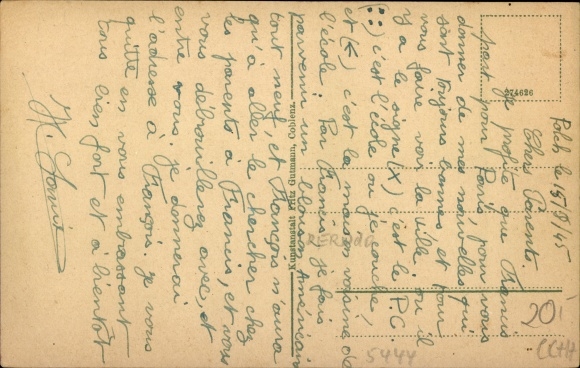 Polch le 15/9/45
Chers Parents.
Je profite que Francis
part pour Paris, pour vous
donner de mes nouvelles qui
sont toujours bonnes et pour
vous faire voir la ville ou il
y a le signe (X) c'est le P.C
(::) c'est l'école ou je couche,
et (←) c'est la maison voisine de
l'école. Par Francis je fais
parvenir un blouson Américain
tout neuf, et François n'aura
qu'à aller le chercher chez
les parents à Francis, et vous
vous débrouillerez avec, et
entre vous. je donnerai
l'adresse à François. Je vous
quitte en vous embrassant
tous bien fort et à bientôt
274626
Kunstanstalt Fritz Gutmann, Coblenz.
5444
20